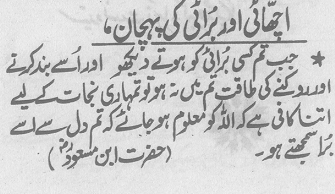 اچھّائی اور برائی کی پہچان،
* جب تم کسی برائی کو ہوتے دیکھو اور اُسے بند کرنے
اور روکنے کی طاقت تم میں نہ ہو تو تمہاری نجات کے لیے
اتنا کافی ہے کہ اللہ کو معلوم ہو جائے کہ تم دل سے اسے
برا سمجھتے ہو۔ (حضرت ابن مسعودؓ)